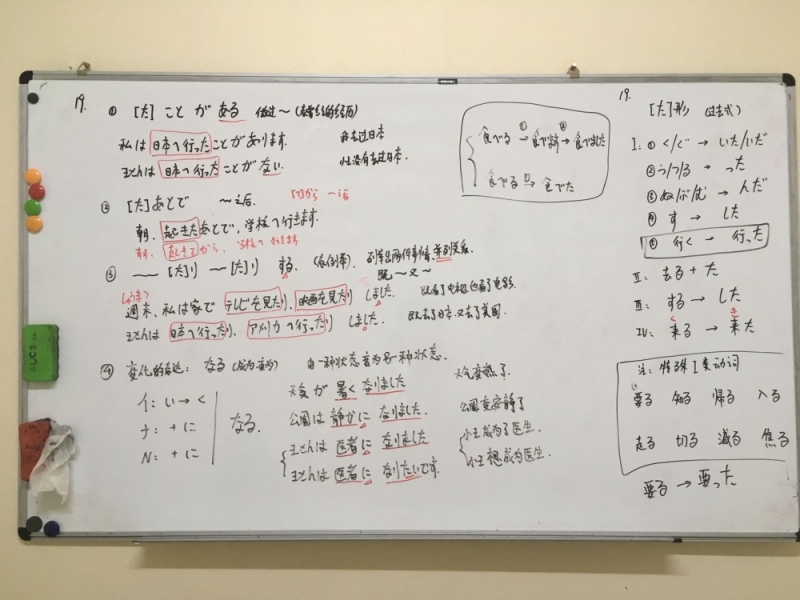 19.
① [た] ことがある 做过～
私は日本へ行ったことがあります. 我去过日本
王さんは日本へ行ったことがない. 小王没有去过日本.
② [た]あとで ～之后. [て]から ～后
朝. 起きたあとで, 学校へ行きます.
朝. 起きてから, 学校へ行きます
③ ～[た]り～[た]りする. 列举出两件事情, 并列关系.
既～又～
しゅうまつ
週末, 私は家でテレビを見たり, 映画を見たりしました. 既看了电视, 也看了电影.
王さんは日本へ行ったり, アメリカへ行ったりしました. 既去了日本. 又去了美国.
④ 变化的表达: なる (成为变为) 由一种状态变为另一种状态.
イ: い→く
ナ: +に
N: +に
なる.
天気が暑くなりました 天气变热了.
公園は静かになりました. 公园变安静了
王さんは医者になりました 小王成为了医生.
王さんは医者になりたいです. 小王想成为医生.
食べる ① → 食べます ② → 食べました
食べる ① → 食べた
19.
[た]形 (过去式)
I: ① く/ぐ → いた/いだ
② う/つ/る → った
③ ぬ/ぶ/む → んだ
④ す → した
⑤ 行く → 行った
II: 去る + た
III: する → した
く き
IV: 来る → 来た
注: 特殊 I 类动词
い
要る 知る 帰る 入る
走る 切る 減る 焦る
要る → 要った